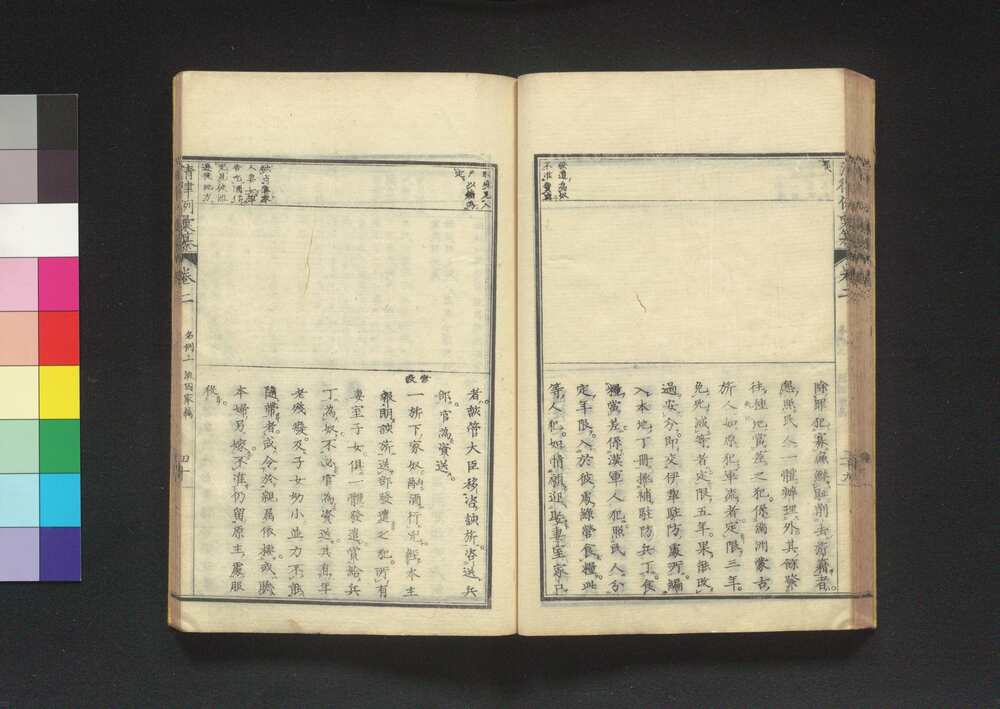 除罪犯寡廉鮮恥削去旗籍者
應照民人一體辦理外其餘發
往種地當差之犯係滿洲蒙古
旗人如原犯軍流者定限三年
免死減等者定限五年果能改
過安分即交伊犁駐防處所編
入本地丁冊挑補駐防兵丁食
糧當差係漢軍人犯照民人分
定年限入於彼處綠營食糧此
等人犯如情願迎娶妻室家口
者該管大臣移咨該旗咨送兵
部官為資送
一旗下家奴酗酒行兇經本主
報明該旗送部發遣之犯所有
妻室子女俱一體發遣賞給兵
丁為奴不必官為資送其有年
老殘廢及子女幼小並力不能
隨帶者或令於親屬依棲或聽
本婦另嫁不准仍留原主處服
役
清律例彙纂
卷二
名例上
流囚家屬
四十